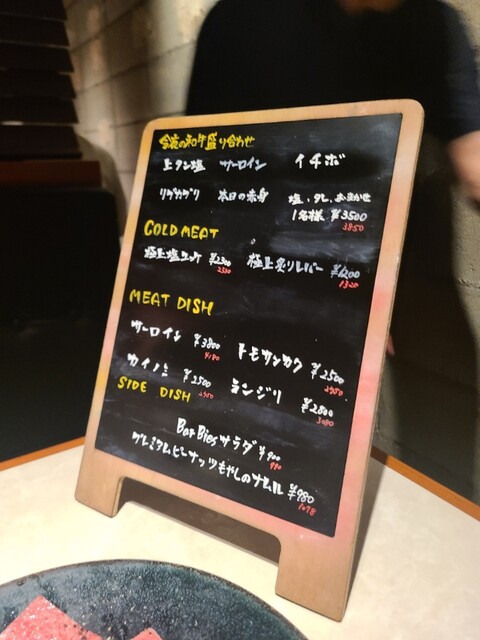 今夜の和牛盛り合わせ
上タン塩 サーロイン イチボ
リブカブリ 本日の赤身 塩、タレ、おまかせ
1名様 ¥3500
3850
COLD MEAT
極上塩ユッケ ¥2300 極上炙りレバー ¥1200
2530 1320
MEAT DISH
サーロイン ¥3800 トモサンカク ¥2500
4180 2750
カイノミ ¥2500 ランジリ ¥2800
2750 3080
SIDE DISH
BarBiesサラダ ¥900
990
プレミアムピーナッツもやしのナムル ¥980
1078